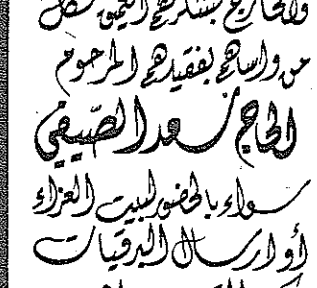 والخارج بشكرهم العميق لكل
من واساهم بفقيدهم المرحوم
الحاج سعد الصيفي
سواء بالحضور لبيت العزاء
أو ارسال البرقيات